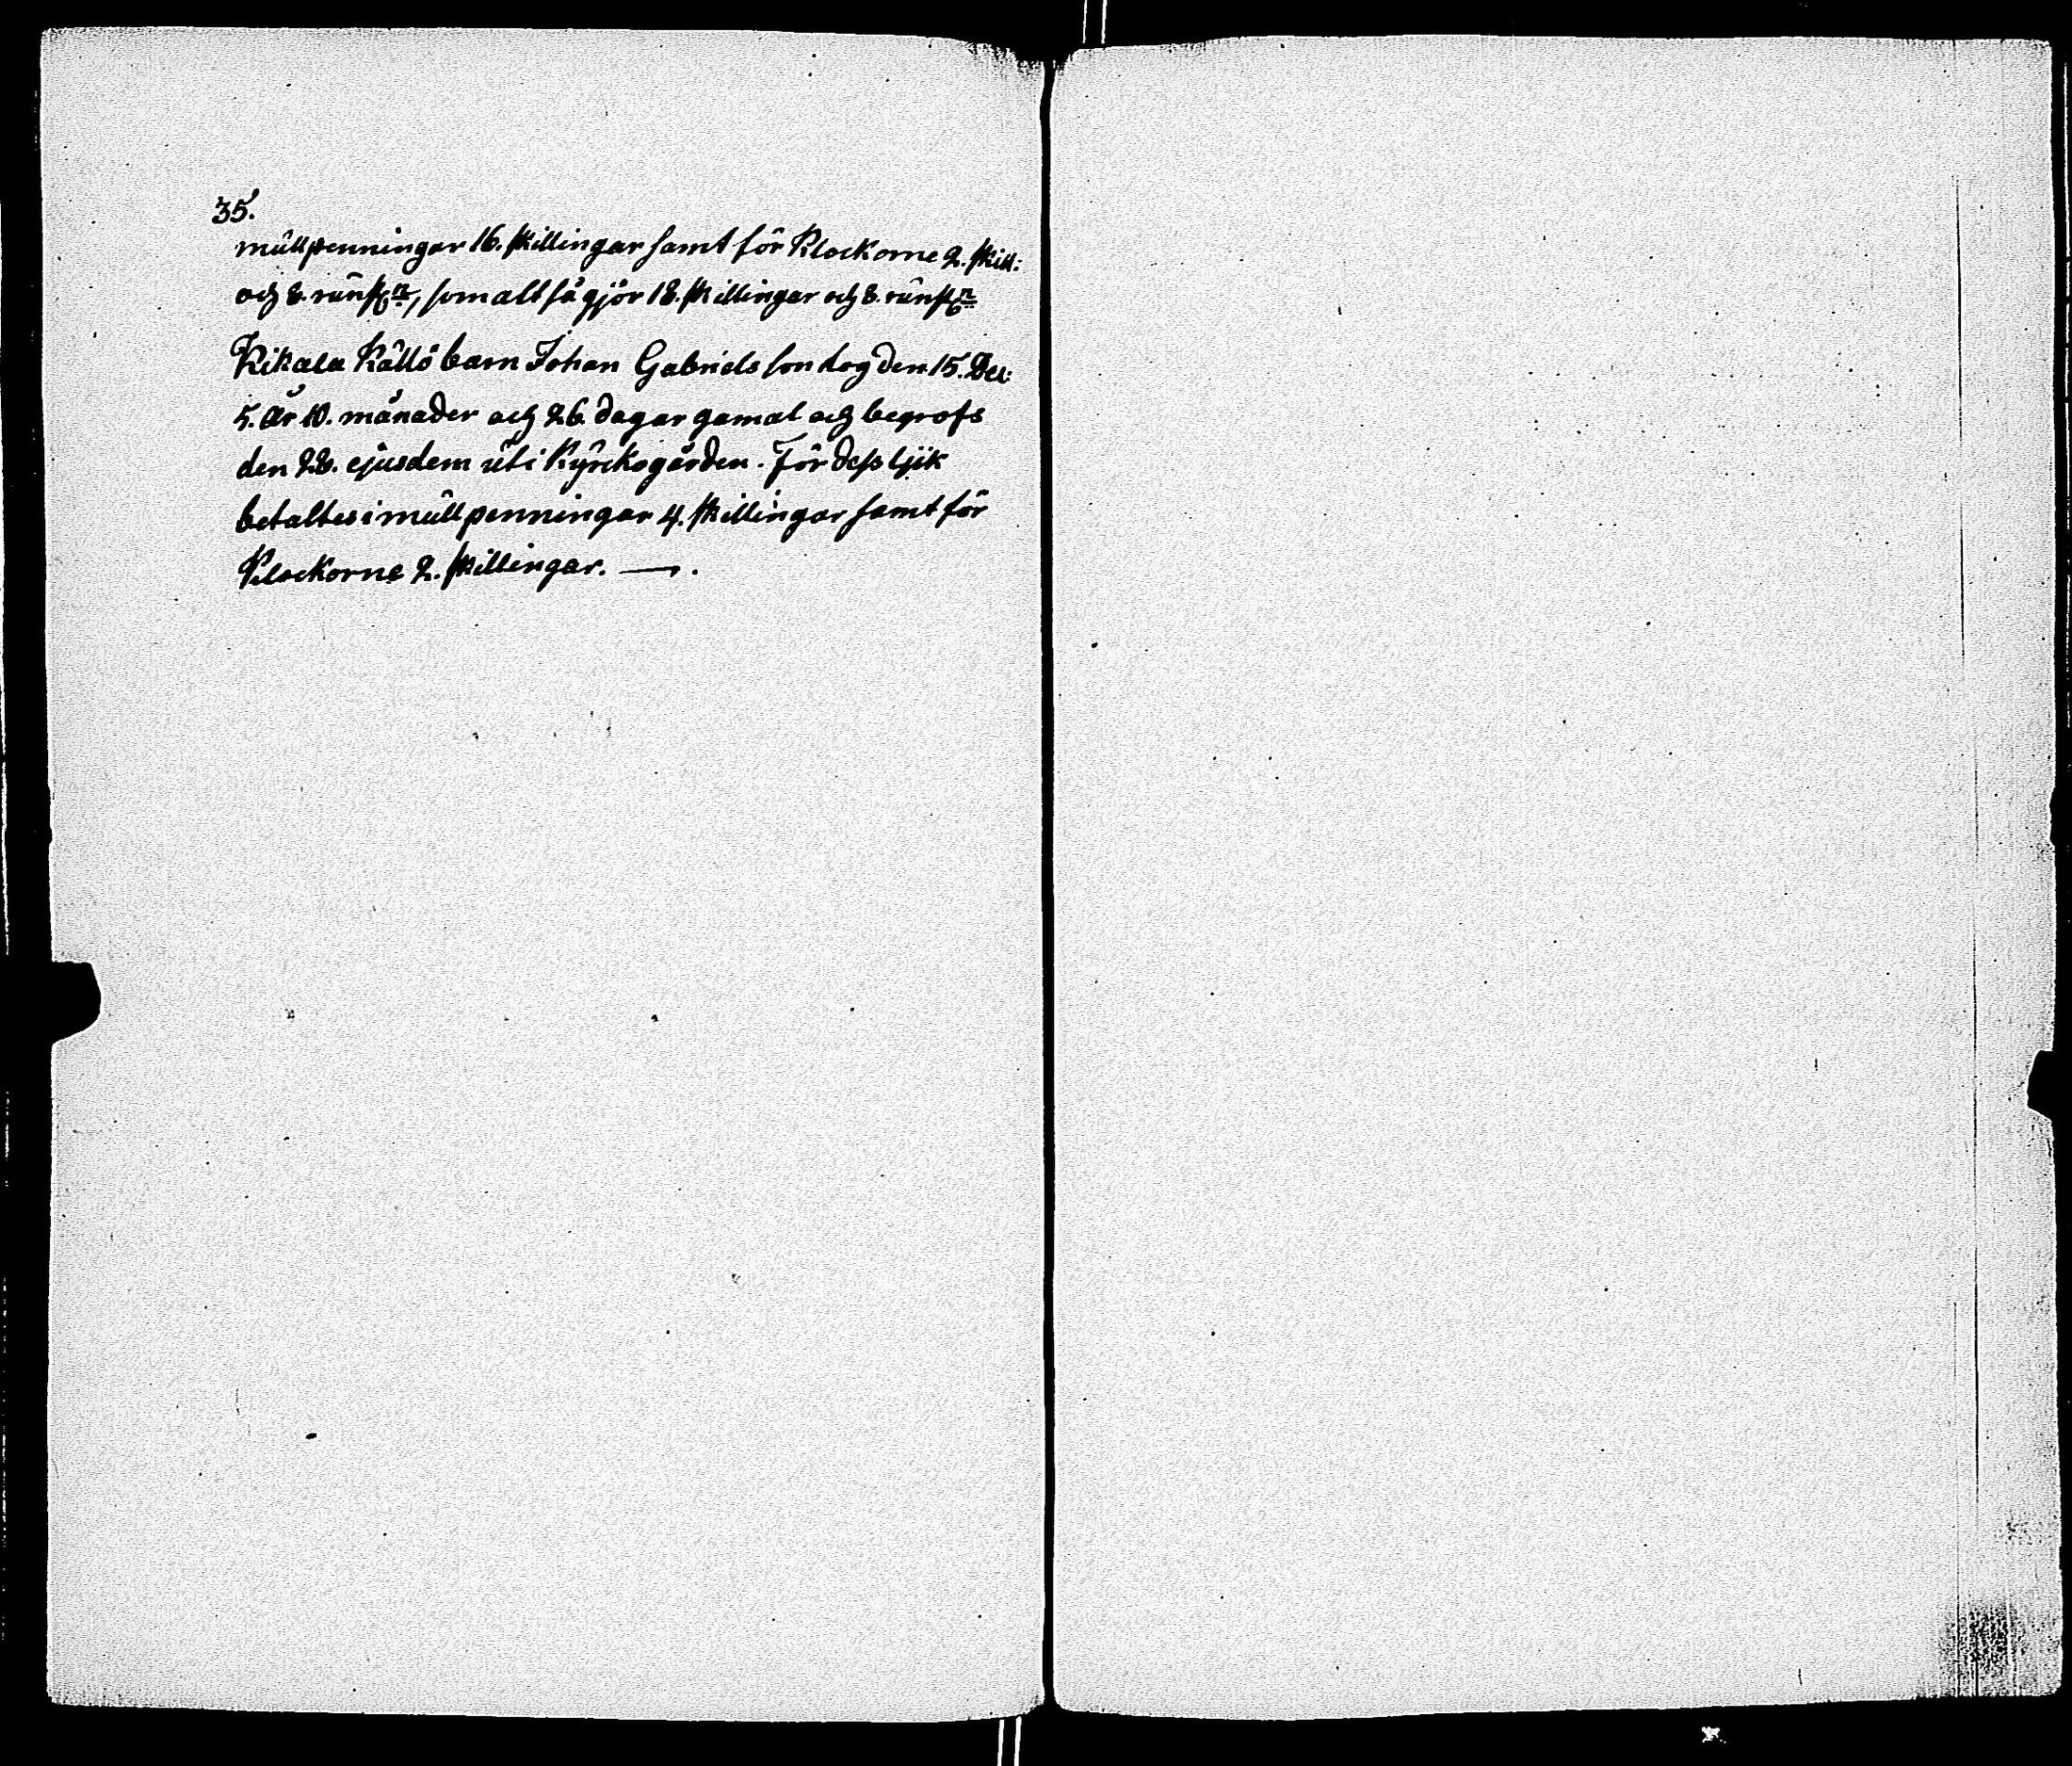 35.
mullpenningar 16. skillingar samt för Klockorne 2. skill:
och 8. runst:r, som alt så gjör 18. skillingar och 8. runst:r
Kikala Källö barn Johan Gabriels son dog den 15. Dec:
5. år 10. månader och 26. dagar gamal och begrofs
den 28. ejusdem uti Kyrckogården. För dess lijk
betaltes i mullpenningar 4. skillingar samt för
Klockorne 2. skillingar. —.